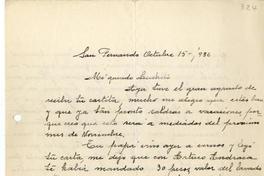 324
San Fernando Octubre 15-/936
Mi querido
Aqui tuve el gran agrado de
recibir tu cartita, mucho me alegro que estés bien
y que ya tan pronto saldras a vacaciones por
que creo que esto sera a mediados del proximo
mes de Noviembre.
Tu papá vino ayer a vernos y
tu carta me dijo que con Arturo
te habia mandado 30 pesos valor del lavado